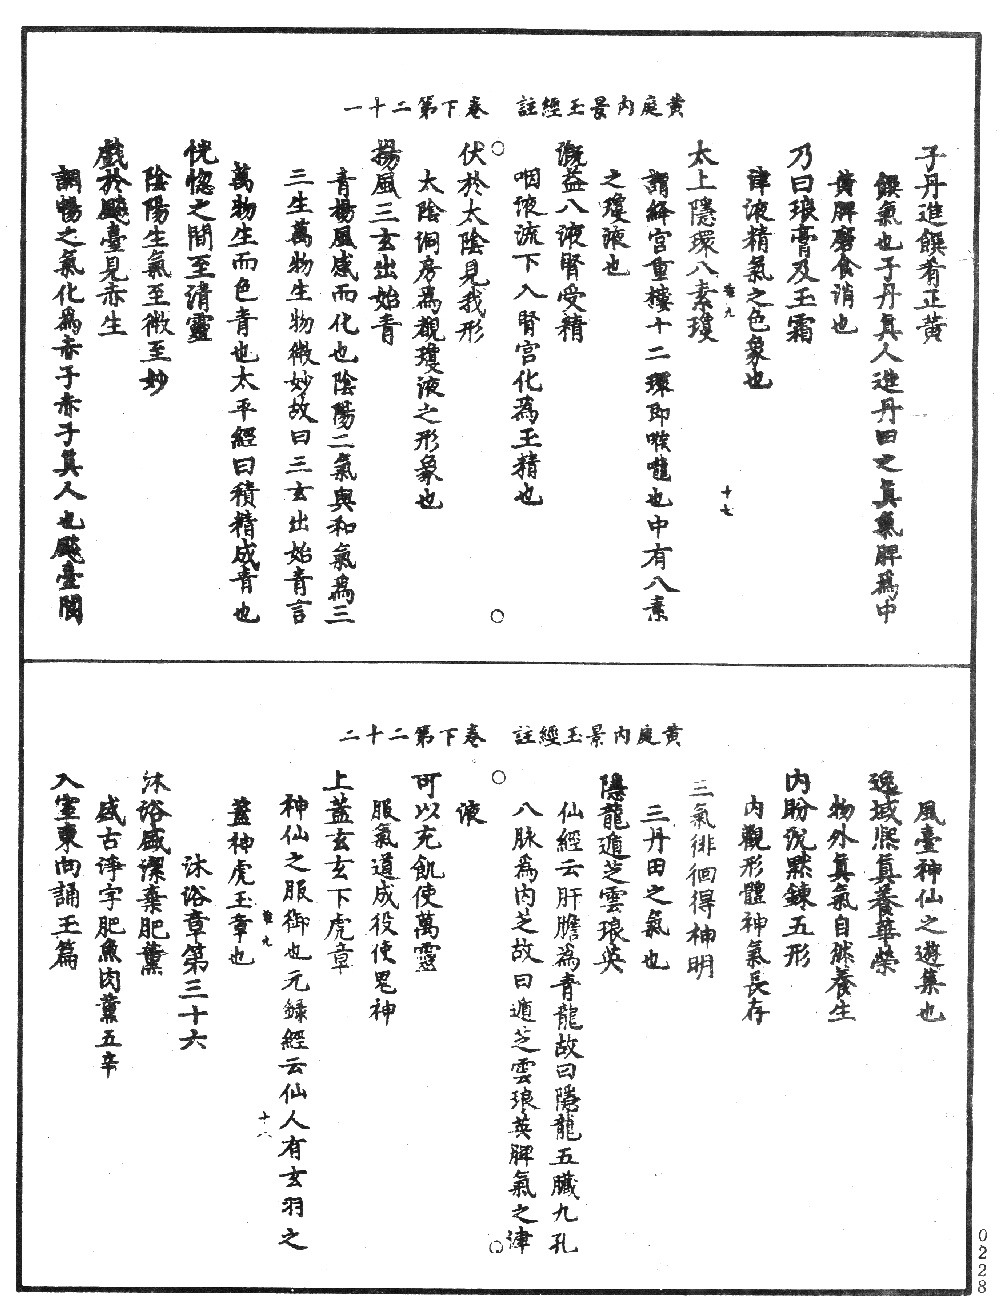 黃庭內景玉經註　卷下第二十一
子丹進饌肴正黃
饌氣也子丹真人進丹田之真氣脾為中
黃脾磨食消也
乃曰琅膏及玉霜
津液精氣之色象也
太上隱環八素瓊
謂絳宮重樓十二環即喉嚨也中有八素
之瓊液也
溉益八液腎受精
咽液流下入腎宮化為玉精也
伏於太陰見我形
太陰洞房為觀瓊液之形象也
揚風三玄出始青
青揚風感而化也陰陽二氣與和氣為三
三生萬物生物微妙故曰三玄出始青言
萬物生而色青也太平經曰積精成青也
恍惚之間至清靈
陰陽生氣至微至妙
戲於飈臺見赤生
調暢之氣化為赤子赤子真人也飈臺閬
十七
黃庭內景玉經註　卷下第二十二
風臺神仙之遊集也
逸域熙真養華榮
物外真氣自然養生
內盼沉默鍊五形
內觀形體神氣長存
三氣徘徊得神明
三丹田之氣也
隱龍遁芝雲琅英
仙經云肝膽為青龍故曰隱龍五臟九孔
八脉為內芝故曰遁芝雲琅英脾氣之津
液
可以充飢使萬靈
服氣道成役使鬼神
上蓋玄玄下虎章
神仙之服御也元錄經云仙人有玄羽之
蓋神虎玉章也
十八
沐浴章第三十六
沐浴盛潔棄肥薰
盛古淨字肥魚肉薰五辛
入室東向誦玉篇
0228